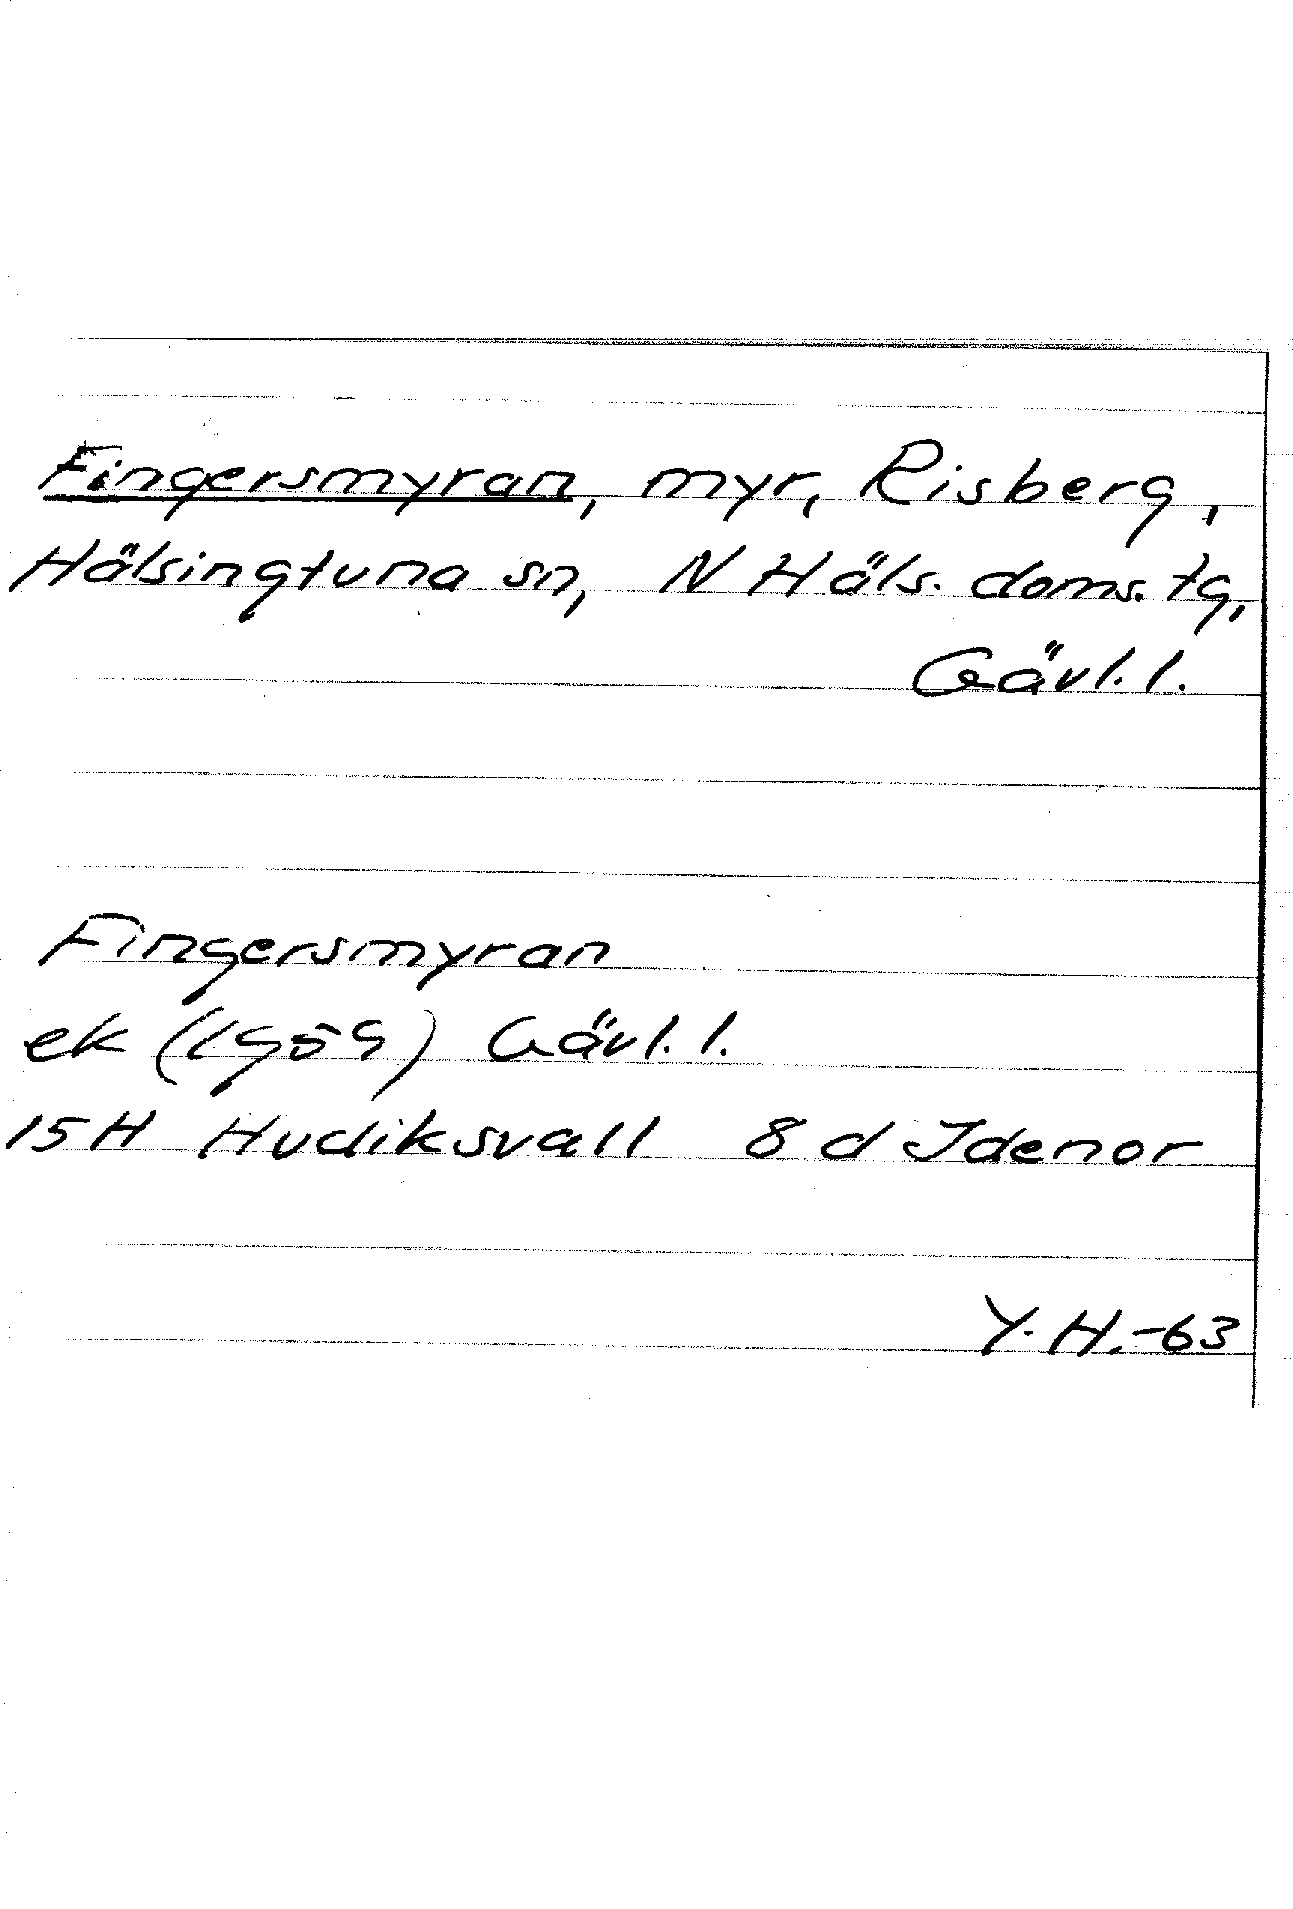 Fingersmyran, myr, Risberg,
Hälsingtuna sn, N Häls. doms. tg,
Gävl. l.
Fingersmyran
ek (1959) Gävl. l.
15H Hudiksvall 8 d Idenor
Y. H. -63